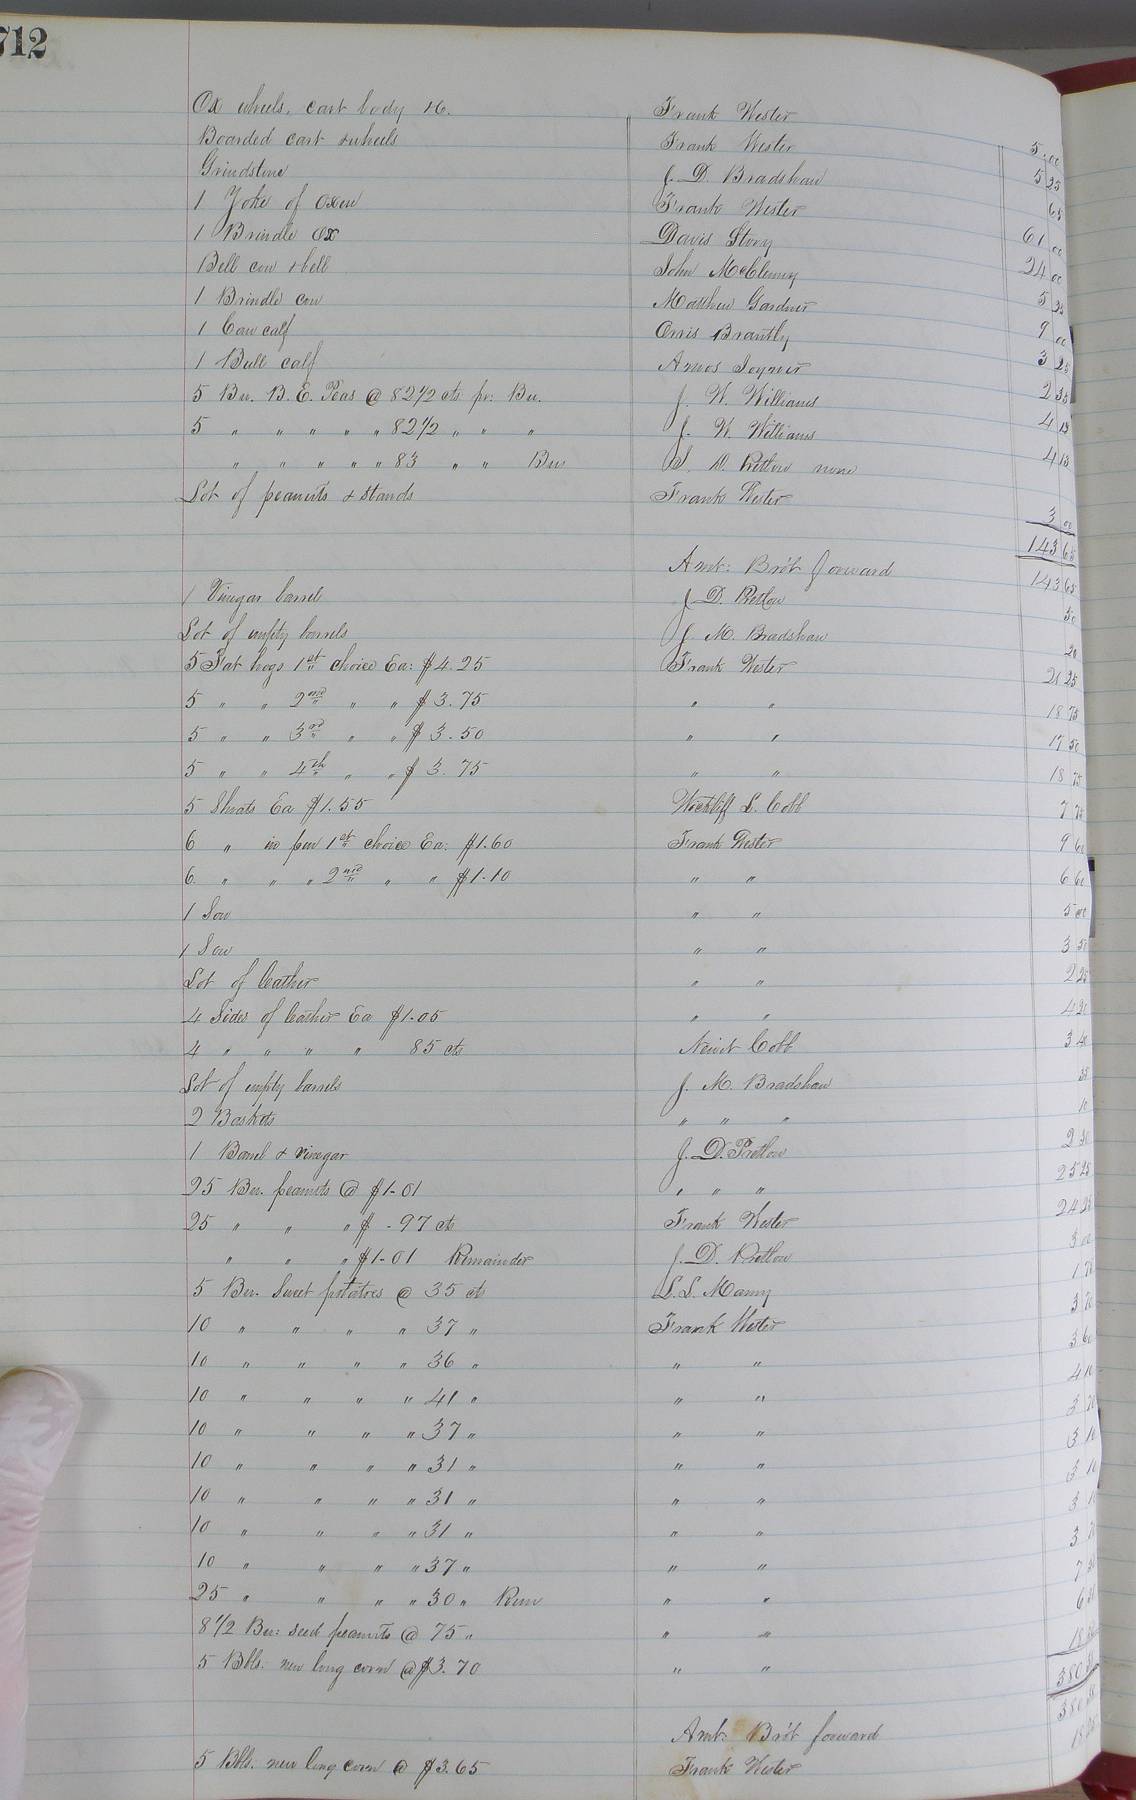 712
Ox wheels, cart body &c. Frank Wester 5.00
Boarded cart & wheels Frank Wester 5 25
Grindstone J. D. Bradshaw 65
1 Yoke of Oxen Frank Wester 61 00
1 Brindle Ox Davis Story 24 00
Bell cow & bell John McClenny 5 35
1 Brindle cow Matthew Gardner 9 00
1 Cow calf Orris Brantly 3 25
1 Bull calf Amos Joyner 2 35
5 Bu. B. E. Peas @ 82 1/2 cts pr: Bu. J. W. Williams 4 13
5 " " " " " 82 1/2 " " " J. W. Williams 4 13
" " " " " 83 " " Bus D. Pretlow none
Lot of peanuts & stands Frank Wester 3 00
143 65
Amt: Bro't forward 143 65
1 Vinegar barrel J. D. Pretlow 50
Lot of empty barrels J. M. Bradshaw 20
5 Fat hogs 1st choice Ea: $4.25 Frank Wester 21 25
5 " " 2nd " " $3.75 " " 18 75
5 " " 3rd " " $3.50 " " 17 50
5 " " 4th " " $3.75 " " 18 75
5 Shoats Ea $1.55 Wickliff L. Cobb 7 75
6 " in pen 1st choice Ea: $1.60 Frank Wester 9 60
6 " " " 2nd " " $1.10 " " 6 60
1 Sow " " 5 00
1 Sow " " 3 50
Lot of leather " " 2 25
4 Sides of leather Ea $1.05 " " 4 20
4 " " " " 85 cts Cobb 3 40
Lot of empty barrels J. M. Bradshaw 35
2 Baskets " " " 10
1 Barrel & vinegar J. D. Pretlow 2
25 Bu. peanuts @ $1.01 " " " 25 25
25 " " " $ .97 cts Frank Wester 24 25
" " " $1.01 Remainder J. D. Pretlow 3 00
5 Bu. Sweet potatoes @ 35 cts L. L. Manny 1 75
10 " " " " 37 " Frank Wester 3 70
10 " " " " 36 " " " 3 60
10 " " " " 41 " " " 4 10
10 " " " " 37 " " " 3 70
10 " " " " 31 " " " 3 10
10 " " " " 31 " " " 3 10
10 " " " " 31 " " " 3 10
10 " " " " 37 " " " 3 70
25 " " " " 30 " Rem " " 7
8 1/2 Bu: seed peanuts @ 75 " " " 6
5 Bbls. new long corn @ $3.70 " " 18
380
Amt: Bro't forward 380
5 Bbls. new long corn @ $3.65 Frank Wester 18